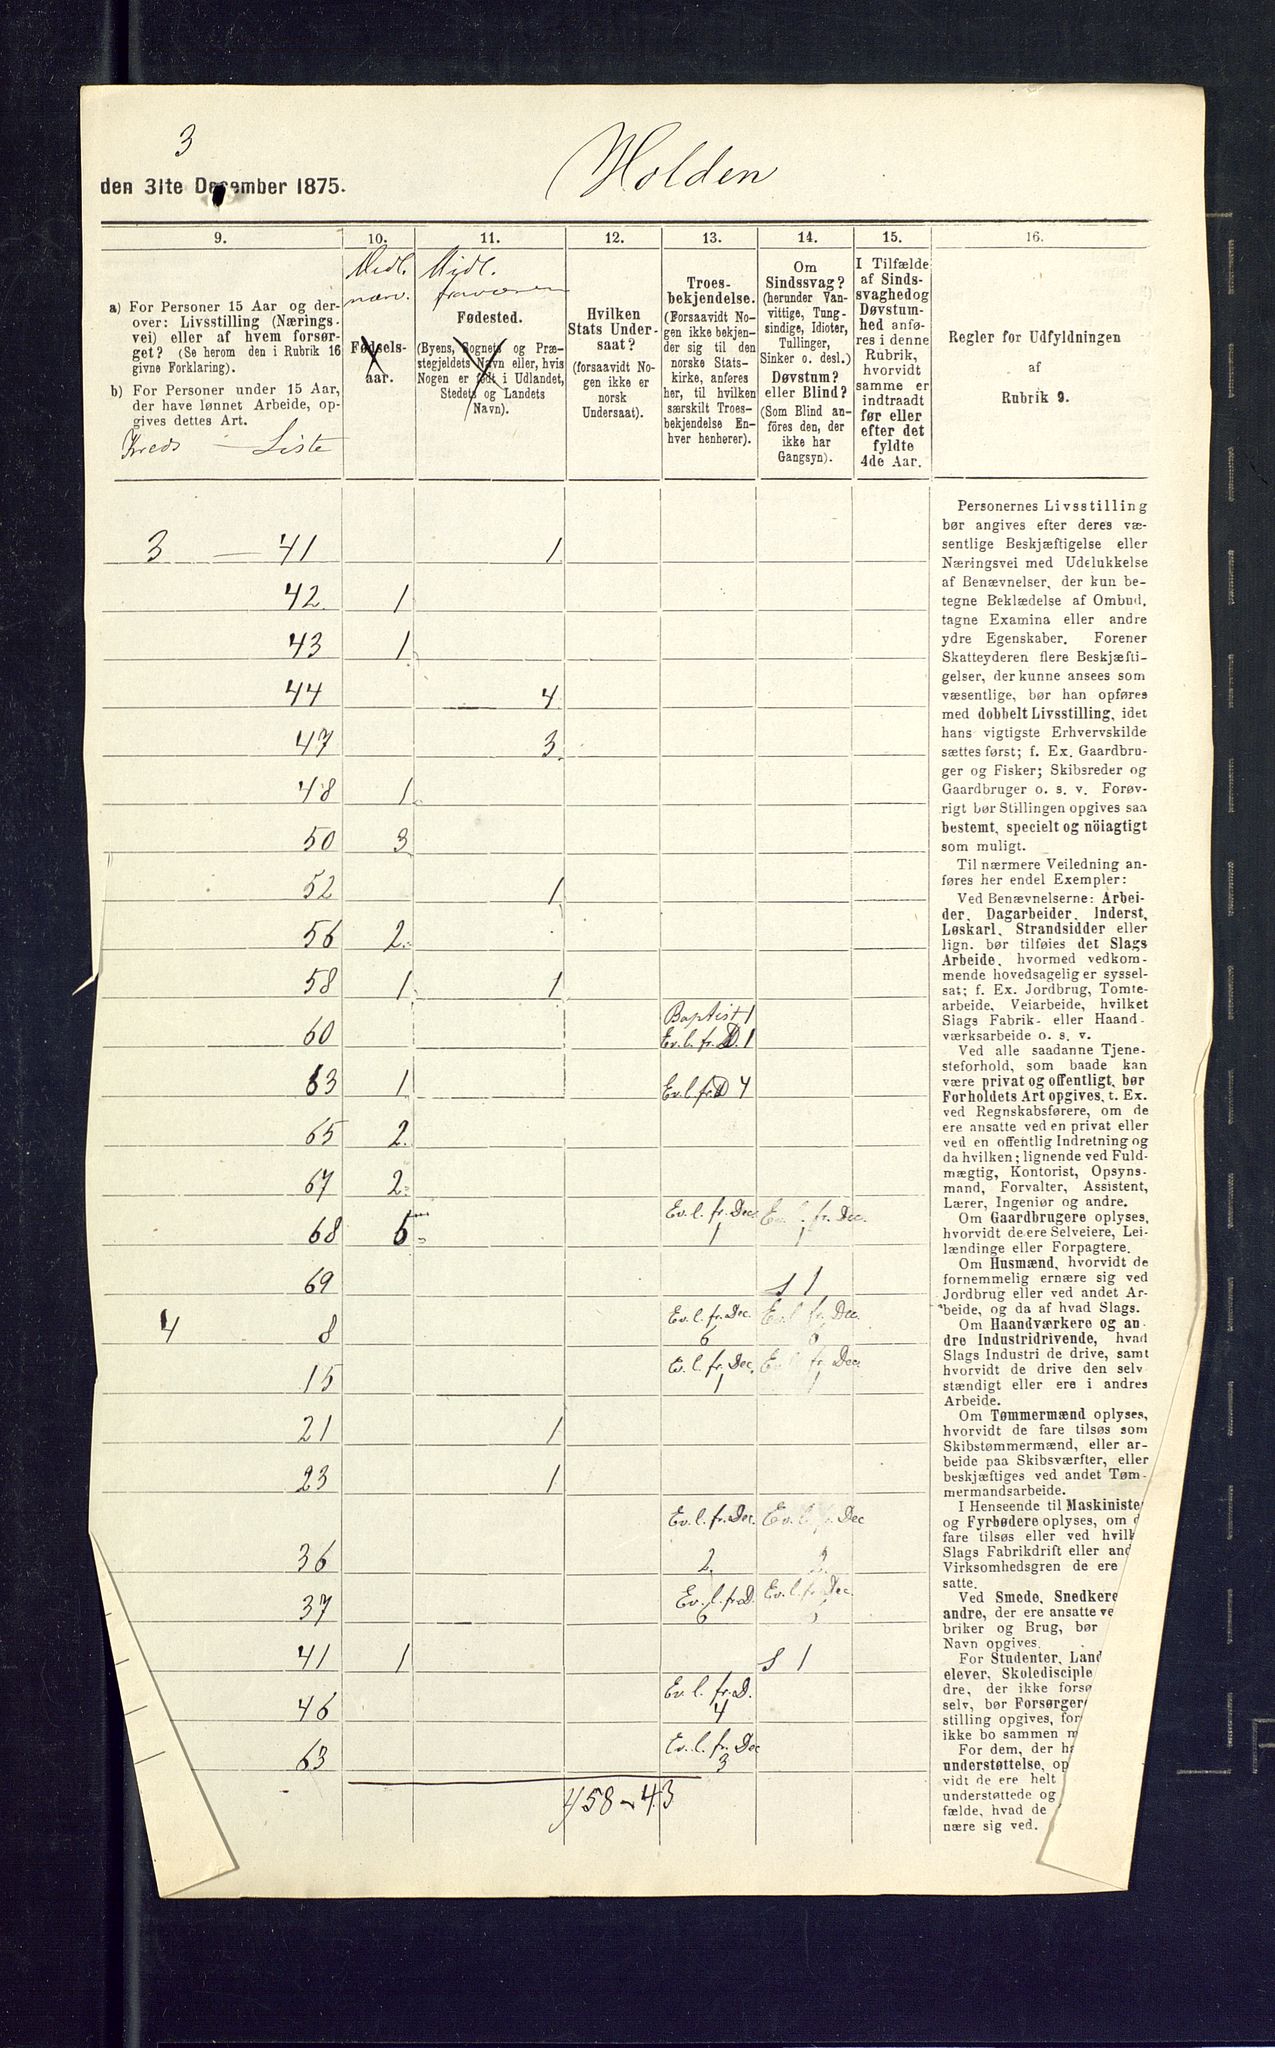 3
den 31te December 1875.
Holden
9.
10.
11.
12.
13.
14.
15.
16.
a) For Personer 15 Aar og der-
over: Livsstilling (Nærings-
vei) eller af hvem forsør-
get? (Se herom den i Rubrik 16
givne Forklaring).
b) For Personer under 15 Aar,
der have lønnet Arbeide, op-
gives dettes Art.
Kreds - Liste
Midl.
nærv.
Fødsels-
aar.
Midl.
fraværen
Fødested.
(Byens, Sognets og Præ-
stegjeldets Navn eller, hvis
Nogen er født i Udlandet,
Stedets og Landets
Navn).
Hvilken
Stats Under-
saat?
(forsaavidt No-
gen ikke er
norsk
Undersaat).
Troes-
bekjendelse.
(Forsaavidt No-
gen ikke bekjen-
der sig til den
norske Stats-
kirke, anføres
her, til hvilken
særskilt Troes-
bekjendelse En-
hver henhører).
Om
Sindssvag?
(herunder Van-
vittige, Tung-
sindige, Idioter,
Tullinger,
Sinker o. desl.)
Døvstum?
eller Blind?
(Som Blind an-
føres den, der
ikke har
Gangsyn).
I Tilfælde
af Sinds-
svaghedog
Døvstum-
hed anfø-
res i denne
Rubrik,
hvorvidt
samme er
indtraadt
før eller
efter det
fyldte
4de Aar.
Regler for Udfyldningen
af
Rubrik 9.
3 — 41 1
42 1
43 1
44 4
47 3
48 1
50 3
52 1
56 2
58 1 1
Baptist 1
60 Ev. l. fr. D. 1
63 1 Ev. l. fr D 4
65 2
67 2
Ev. l. fr. Dec. Ev. l. fr. Dec.
68 5 1 1
69 S 1
Ev. l. fr. Dec. Ev. l. fr. Dec.
4 8 6 6
Ev. l. fr. Dec. Ev. l. fr. Dec.
15 1 1
21 1
23 1
Ev. l. fr. Dec. Ev. l. fr. Dec
36 2. 2.
Ev. l. fr D. Ev. l. fr. Dec.
37 6 6
41 1 S 1
Ev. l. fr. D.
46 4
Ev. l. fr. Dec
63 3
458 - 43
Personernes Livsstilling
bør angives efter deres væ-
sentlige Beskjæftigelse eller
Næringsvei med Udelukkelse
af Benævnelser, der kun be-
tegne Beklædelse af Ombud,
tagne Examina eller andre
ydre Egenskaber. Forener
Skatteyderen flere Beskjæfti-
gelser, der kunne ansees som
væsentlige, bør han opføres
med dobbelt Livsstilling, idet
hans vigtigste Erhvervskilde
sættes først; f. Ex. Gaardbru-
ger og Fisker; Skibsreder og
Gaardbruger o. s. v. Forøv-
rigt bør Stillingen opgives saa
bestemt, specielt og nöiagtigt
som muligt.
Til nærmere Veiledning an-
føres her endel Exempler:
Ved Benævnelserne: Arbei-
der, Dagarbeider, Inderst,
Løskarl, Strandsidder eller
lign. bør tilføies det Slags
Arbeide, hvormed vedkom-
mende hovedsagelig er syssel-
sat; f. Ex. Jordbrug, Tomte-
arbeide, Veiarbeide, hvilket
Slags Fabrik- eller Haand-
værksarbeide o. s. v.
Ved alle saadanne Tjene-
steforhold, som baade kan
være privat og offentligt, bør
Forholdets Art opgives, t. Ex.
ved Regnskabsførere, om de
ere ansatte ved en privat eller
ved en offentlig Indretning og
da hvilken; lignende ved Fuld-
mægtig, Kontorist, Opsyns-
mand, Forvalter, Assistent,
Lærer, Ingeniør og andre.
Om Gaardbrugere oplyses,
hvorvidt de ere Selveiere, Lei-
lændinge eller Forpagtere.
Om Husmænd, hvorvidt de
fornemmelig ernære sig ved
Jordbrug eller ved andet Ar-
beide, og da af hvad Slags.
Om Haandværkere og an-
dre Industridrivende, hvad
Slags Industri de drive, samt
hvorvidt de drive den selv-
stændigt eller ere i andres
Arbeide.
Om Tømmermænd oplyses,
hvorvidt de fare tilsøs som
Skibstømmermænd, eller ar-
beide paa Skibsværfter, eller
beskjæftiges ved andet Tøm-
mermandsarbeide.
I Henseende til Maskiniste
og Fyrbødere oplyses, om d
fare tilsøs eller ved hvilk
Slags Fabrikdrift eller and
Virksomhedsgren de ere
satte.
Ved Smede, Snedkere
andre, der ere ansatte ve
briker og Brug, bør
Navn opgives.
For Studenter, Land
elever, Skoledisciple
dre, der ikke forsø
selv, bør Forsørger
stilling opgives, for
ikke bo sammen m
For dem, der h
understøttelse, op
vidt de ere helt
understøttede og
fælde, hvad de
nære sig ved.